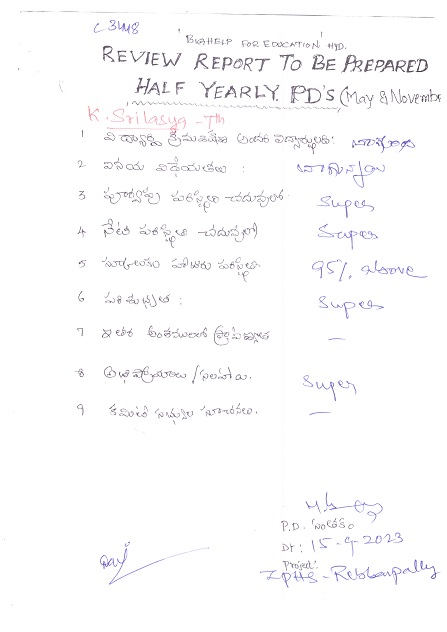 C 3448
'BIGHELP FOR EDUCATION' HYD.
REVIEW REPORT TO BE PREPARED
HALF YEARLY. PD'S (May & November
K. Srilasya - 7th
1 విద్యార్థి క్రమశిక్షణ అందరి విద్యార్థులతో: బాగున్నది
2 వినయ విధేయతలు : బాగున్నాయి
3 పూర్వపు పరిస్థితి చదువులో Super
4 నేటి పరిస్థితి చదువులో Super
5 స్కూలుకు హాజరు పరిస్థితి 95% above
6 పరిశుభ్రత : Super
7 ఇతర అంశములలో ప్రావీణ్యత -
8 అభిప్రాయాలు /సలహాలు. Super
9 కమిటీ సభ్యుల సూచనలు. -
P.D. సంతకం
Dt : 15-9-2023
Project:
ZPHS - Rebbanpally